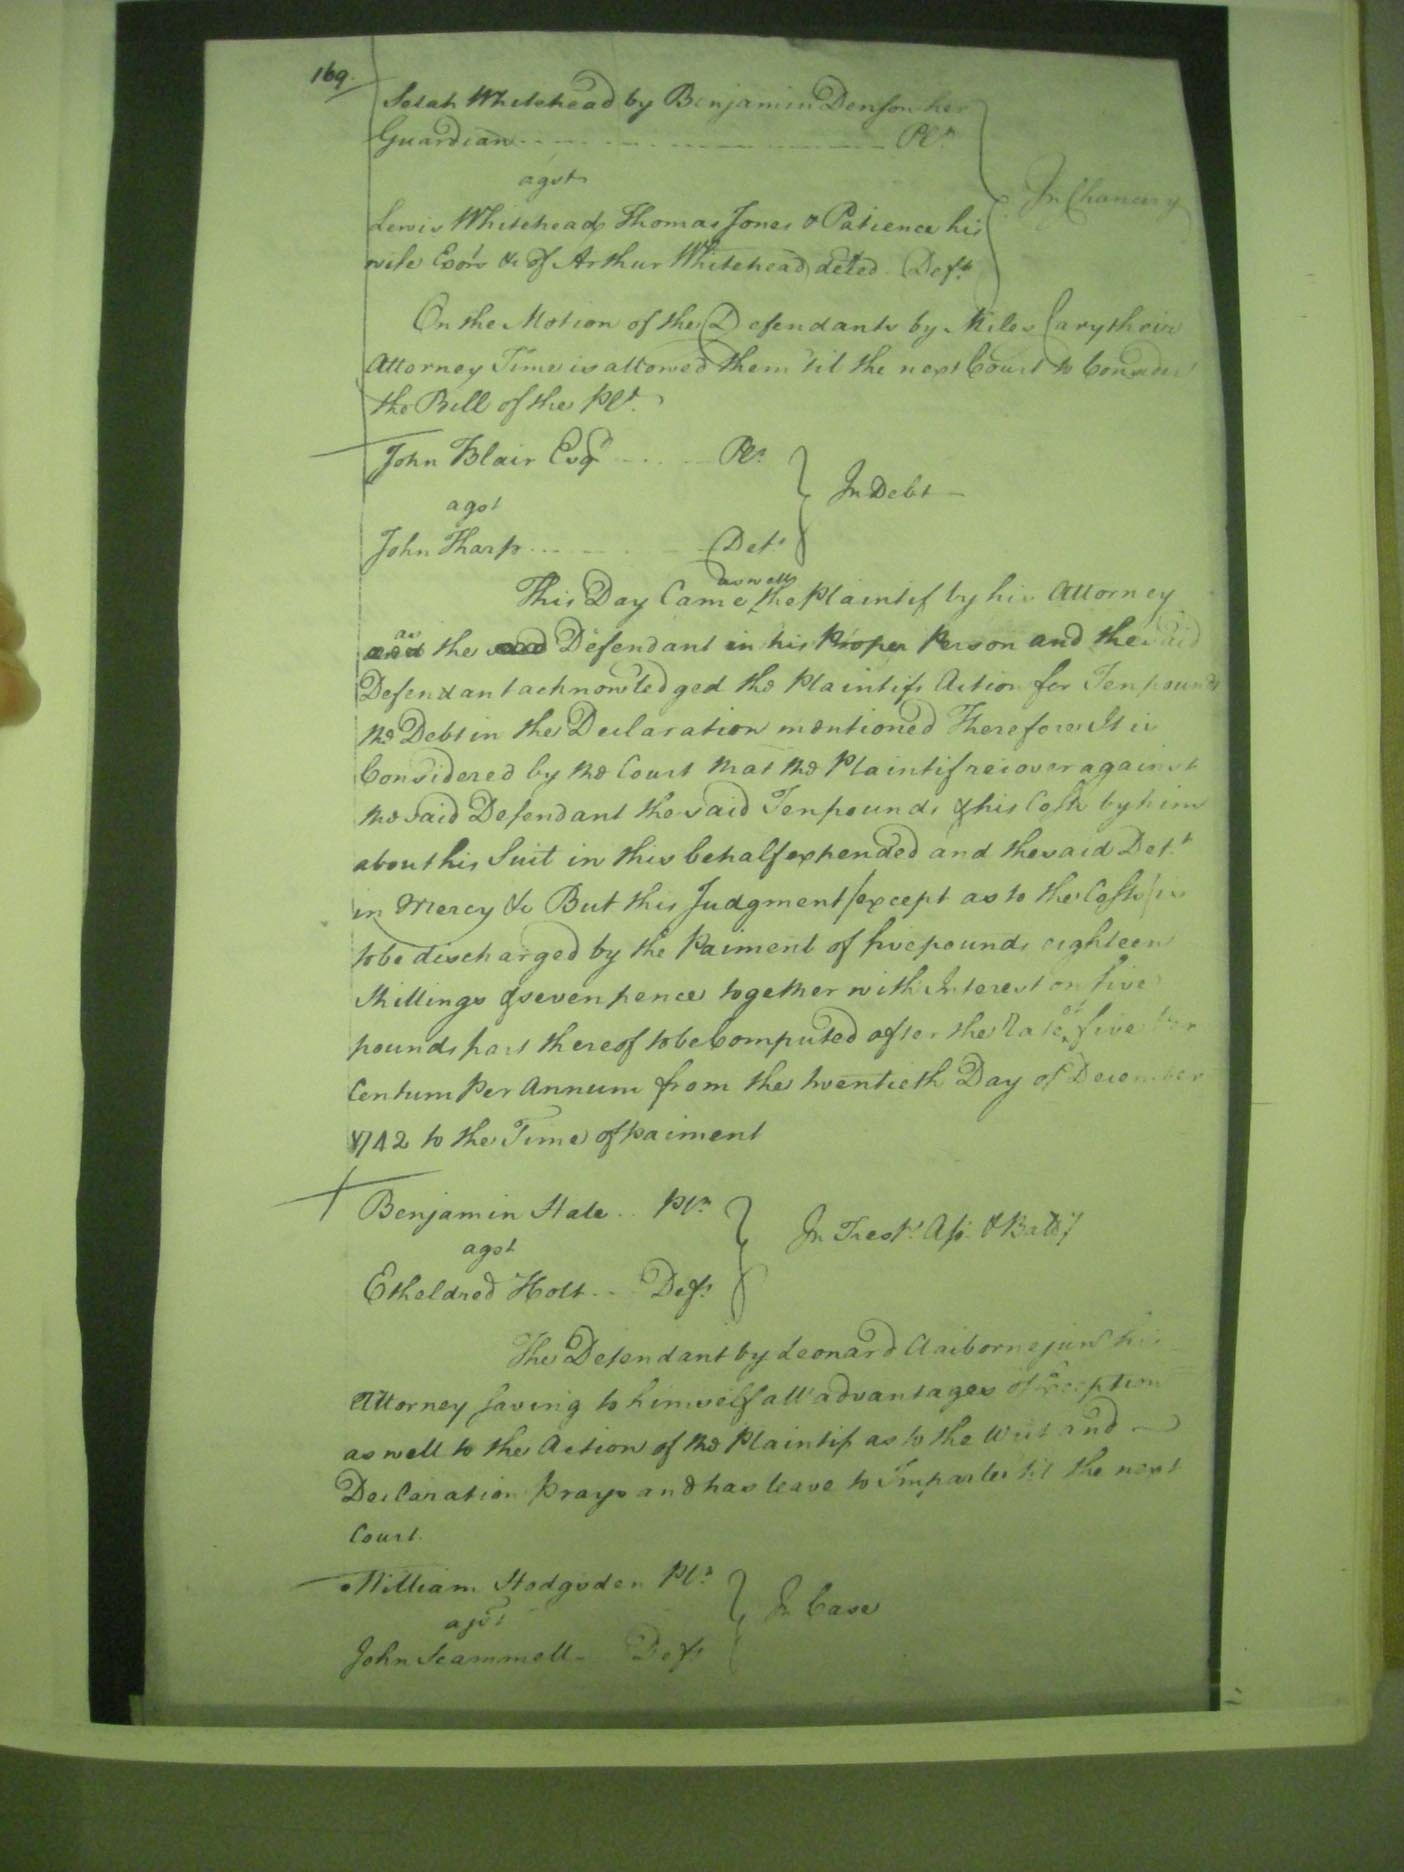 169.
Selah Whitehead by Benjamin Denson her
Guardian Plt.
agst
In Chancery
Lewis Whitehead, Thomas Jones & Patience his
wife Exors &c of Arthur Whitehead deced. Defts
On the Motion of the Defendants by Miles Cary their
Attorney Time is allowed them 'til the next Court to Consider
the Bill of the Plt.
John Blair Esqr Plt.
agst
In Debt
John Tharp Deft
This Day Came as well the Plaintif by his Attorney
as the Defendant in his Proper Person and the said
Defendant acknowledged the Plaintifs Action for Ten pounds
the Debt in the Declaration mentioned Therefore It is
Considered by the Court that the Plaintif recover against
the said Defendant the said Ten pounds & his Costs by him
about his Suit in this behalf expended and the said Deft
in Mercy &c But this Judgment (except as to the Costs) is
to be discharged by the Paiment of five pounds eighteen
Shillings & seven pence together with Interest on five
pounds part thereof to be Computed after the Rate of five Per
Centum Per Annum from the twentieth Day of December
1742 to the Time of paiment
Benjamin Hale Plt.
agst
In Tresps Ass. & Batt'y
Etheldred Holt Deft
The Defendant by Leonard Claiborne junr his
Attorney saving to himself all advantages of Exception
as well to the Action of the Plaintif as to the Writ and
Declaration Prays and has leave to Imparle 'til the next
Court.
William Hodgsden Plt.
agst
In Case
John Scammell Deft